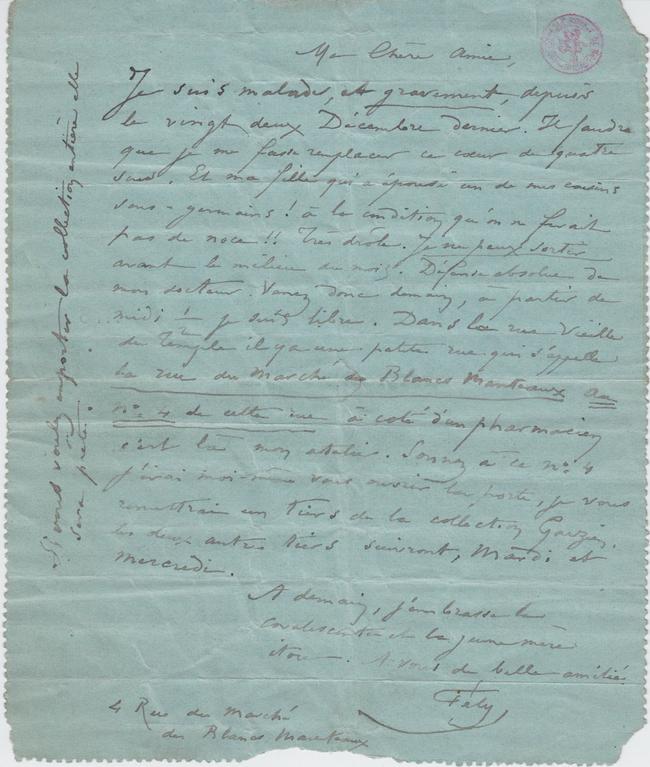 Ma Chère Amie,
Je suis malade, et gravement, depuis
le vingt deux Décembre dernier. Il faudra
que je me fasse remplacer ce cœur de quatre
sous. Et ma fille qui a épousé un de mes cousins
sous-germains! à la condition qu'on ne ferait
pas de noce!! Très drôle. Je ne peux sortir
avant le milieu du mois. Défense absolue de
mon docteur. Venez donc demain, à partir de
midi! – je suis libre. Dans la rue Vieille
du Temple il y a une petite rue qui s'appelle
la rue du Marché des Blancs Manteaux au
nº 4 de cette rue à coté d'un pharmacien
c'est là mon atelier. Sonnez à ce nº 4
j'irai moi-même vous ouvrir la porte, je vous
remettrai un tiers de la collection
les deux autres tiers suivront, Mardi et
mercredi.
A demain, j'embrasse la
et la jeune mère
A vous de belle amitié
Fély
4 Rue du Marché
des Blancs Manteaux
Si vous voulez emporter la collection entière elle
sera prête.